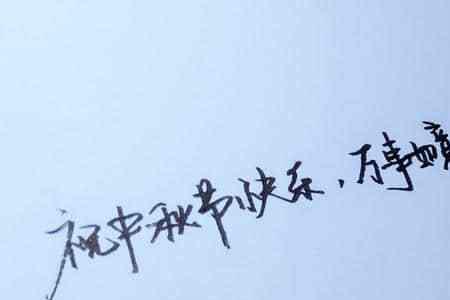 祝中秋节快乐、万事如意